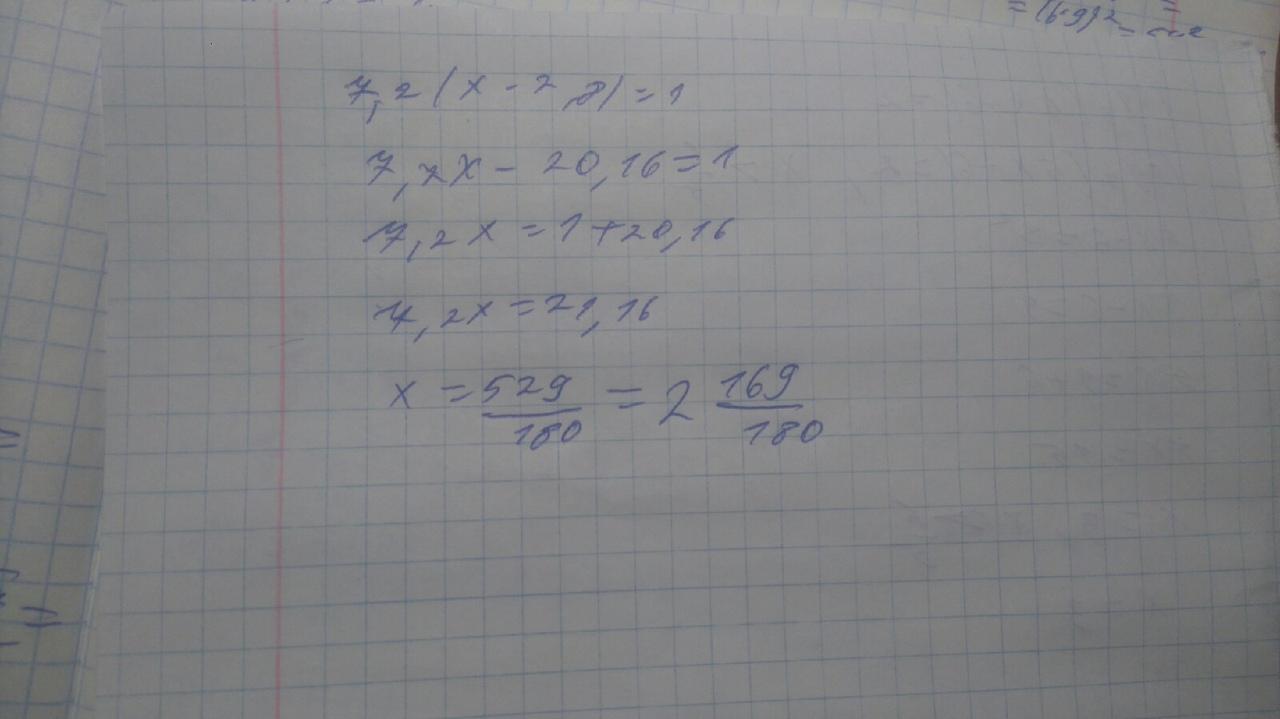 = (6·9)²
7,2(x - 2 8) = 1
7,2x - 20,16 = 1
7,2x = 1 + 20,16
7,2x = 21,16
x = 529/180 = 2 169/180